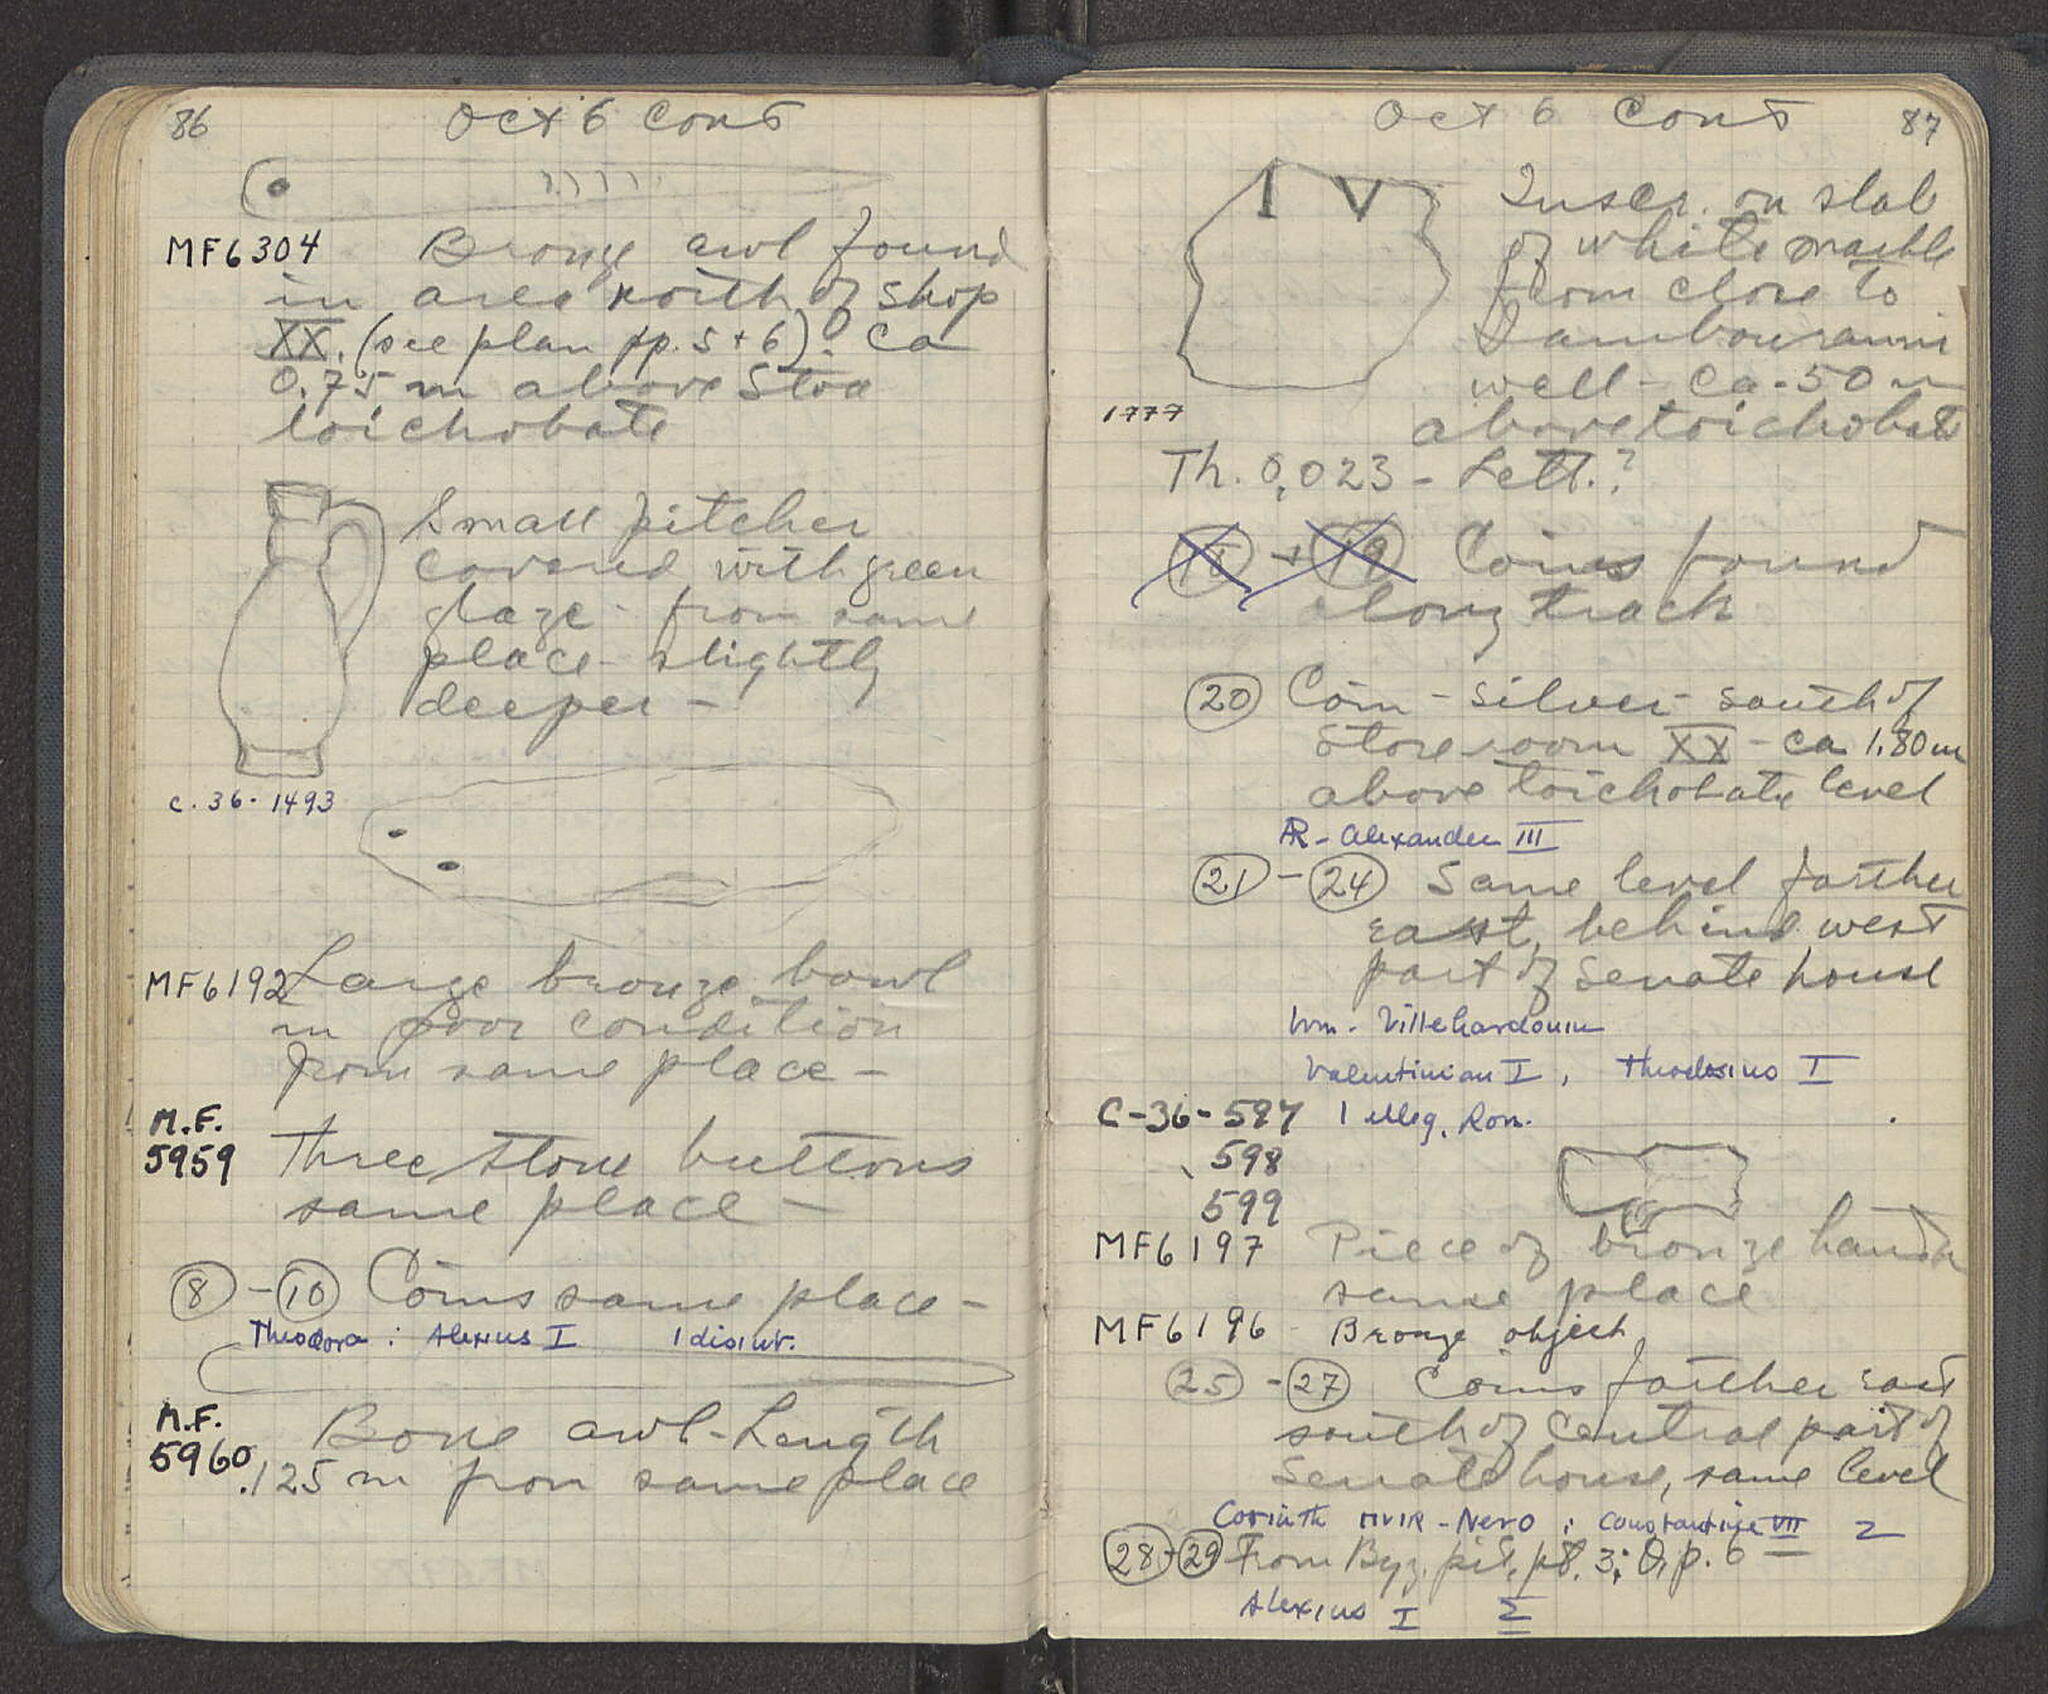 86
Oct 6 Cont
MF6304 Bronze awl found
in area north of Shop
XX. (see plan pp. 5+6). Ca
0.75 m above Stoa
toichobate
Small pitcher
covered with green
glaze - from same
place - slightly
deeper -
C. 36. 1493
MF6192 Large bronze bowl
in poor condition
from same place -
M.F.
5959 Three stone buttons
same place -
8 - 10 Coins same place -
Theodora ; Alexius I 1 disint.
M.F.
5960 Bone awl - Length
.125 m from same place
Oct 6 Cont
87
I V
Inscr. on slab
of white marble
from close to
well - Ca .50 m
1777
above toichobate
Th. 0,023 - Lett.?
+ 19 Coins found
along track
20 Coin - silver - south of
Storeroom XX - ca 1.80 m
above toichobate level
AR - Alexander III
21 - 24 Same level farther
east, behind west
part of Senate house
Wm. Villehardouin
Valentinian I, Theodosius I
C-36-597 1 illeg. Rom.
598
599
MF6197 Piece of bronze handle
same place
MF6196 - Bronze object
25 - 27 Coins farther east
south of central part of
Senate house, same level
Corinth IIVIR - Nero ; Constantine VII 2
28 + 29 From Byz. pit, pt. 3; O, p. 6
Alexius I 2